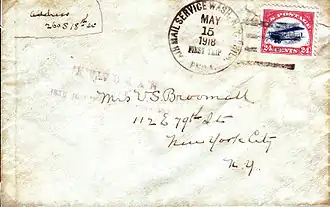 Address
AIR MAIL SERVICE WASH. N.Y. PHILA.
MAY
15
1918
FIRST TRIP
PHILA.
U.S. POSTAGE
24 CENTS 24
Mrs V.S. Broomall
112 E 79th St
New York City
N.Y.